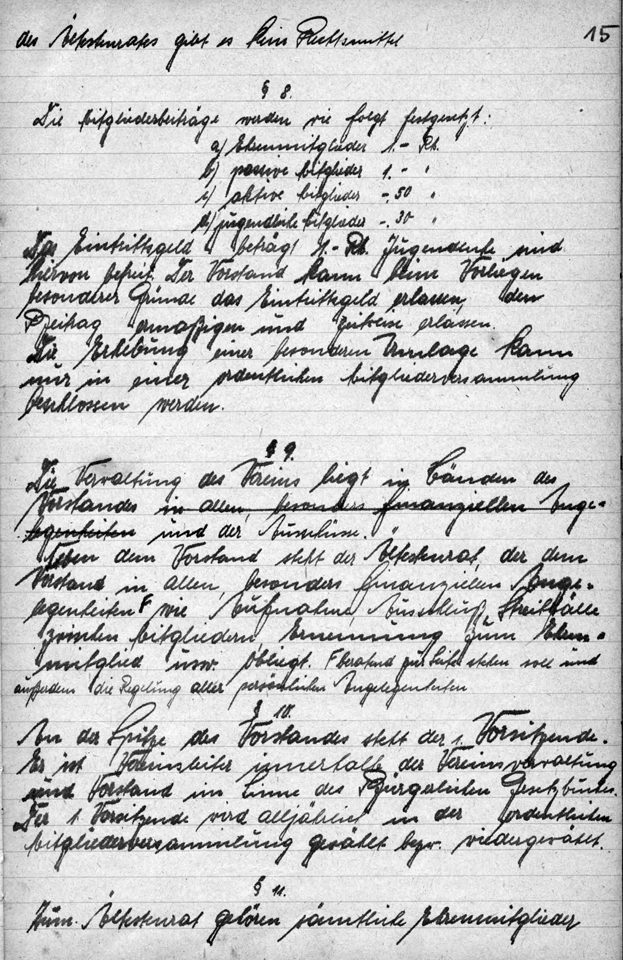 des Ältestenrates gibt es kein Rechtsmittel
15
§ 8.
Die Mitgliederbeiträge werden wie folgt festgesetzt:
a) Ehrenmitglieder 1.- Rk.
b) passive Mitglieder 1.- "
c) aktive Mitglieder -.50 "
d) jugendliche Mitglieder -.30 "
Das Eintrittsgeld beträgt 1.- Rk. Jugendliche sind
hiervon befreit. Der Vorstand kann beim Vorliegen
besonderer Gründe das Eintrittsgeld erlassen, den
Beitrag ermäßigen und zeitweise erlassen.
Die Erhebung einer besonderen Umlage kann
nur in einer ordentlichen Mitgliederversammlung
beschlossen werden.
§ 9.
Die Verwaltung des Vereins liegt in Händen des
Vorstandes in allen, besonders finanziellen Ange-
legenheiten und der Ausschüsse.
Neben dem Vorstand steht der Ältestenrat, der dem
Vorstand in allen, besonders finanziellen Ange-
legenheiten F wie Aufnahme, Ausschluß, Streitfälle
zwischen Mitgliedern Ernennung zum Ehren-
mitglied usw. obliegt. F beratend zur Seite stehen soll und
außerdem die Regelung aller persönlichen Angelegenheiten
§ 10.
An der Spitze des Vorstandes steht der 1. Vorsitzende.
Er ist Vereinsleiter innerhalb der Vereinsverwaltung
und Vorstand im Sinne des Bürgerlichen Gesetzbuches.
Der 1. Vorsitzende wird alljährlich in der ordentlichen
Mitgliederversammlung gewählt bezw. wiedergewählt.
§ 11.
Zum Ältestenrat gehören sämtliche Ehrenmitglieder